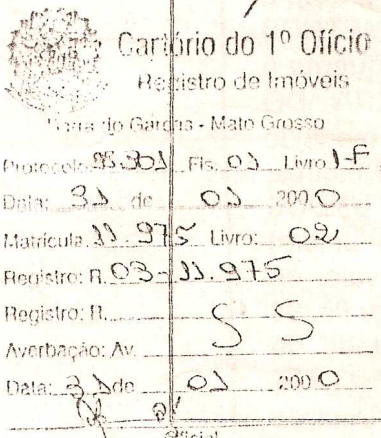 Cartório do 1º Ofício
Registro de Imóveis
Barra do Garças - Mato Grosso
Protocolo: Fls. 01 Livro 1-F
Data: 31 de 01 2000
Matrícula 11.975 Livro: 02
Registro: R. 03-11.975
Registro: R.
Averbação: Av.
Data: 31 de 01 2000
Oficial